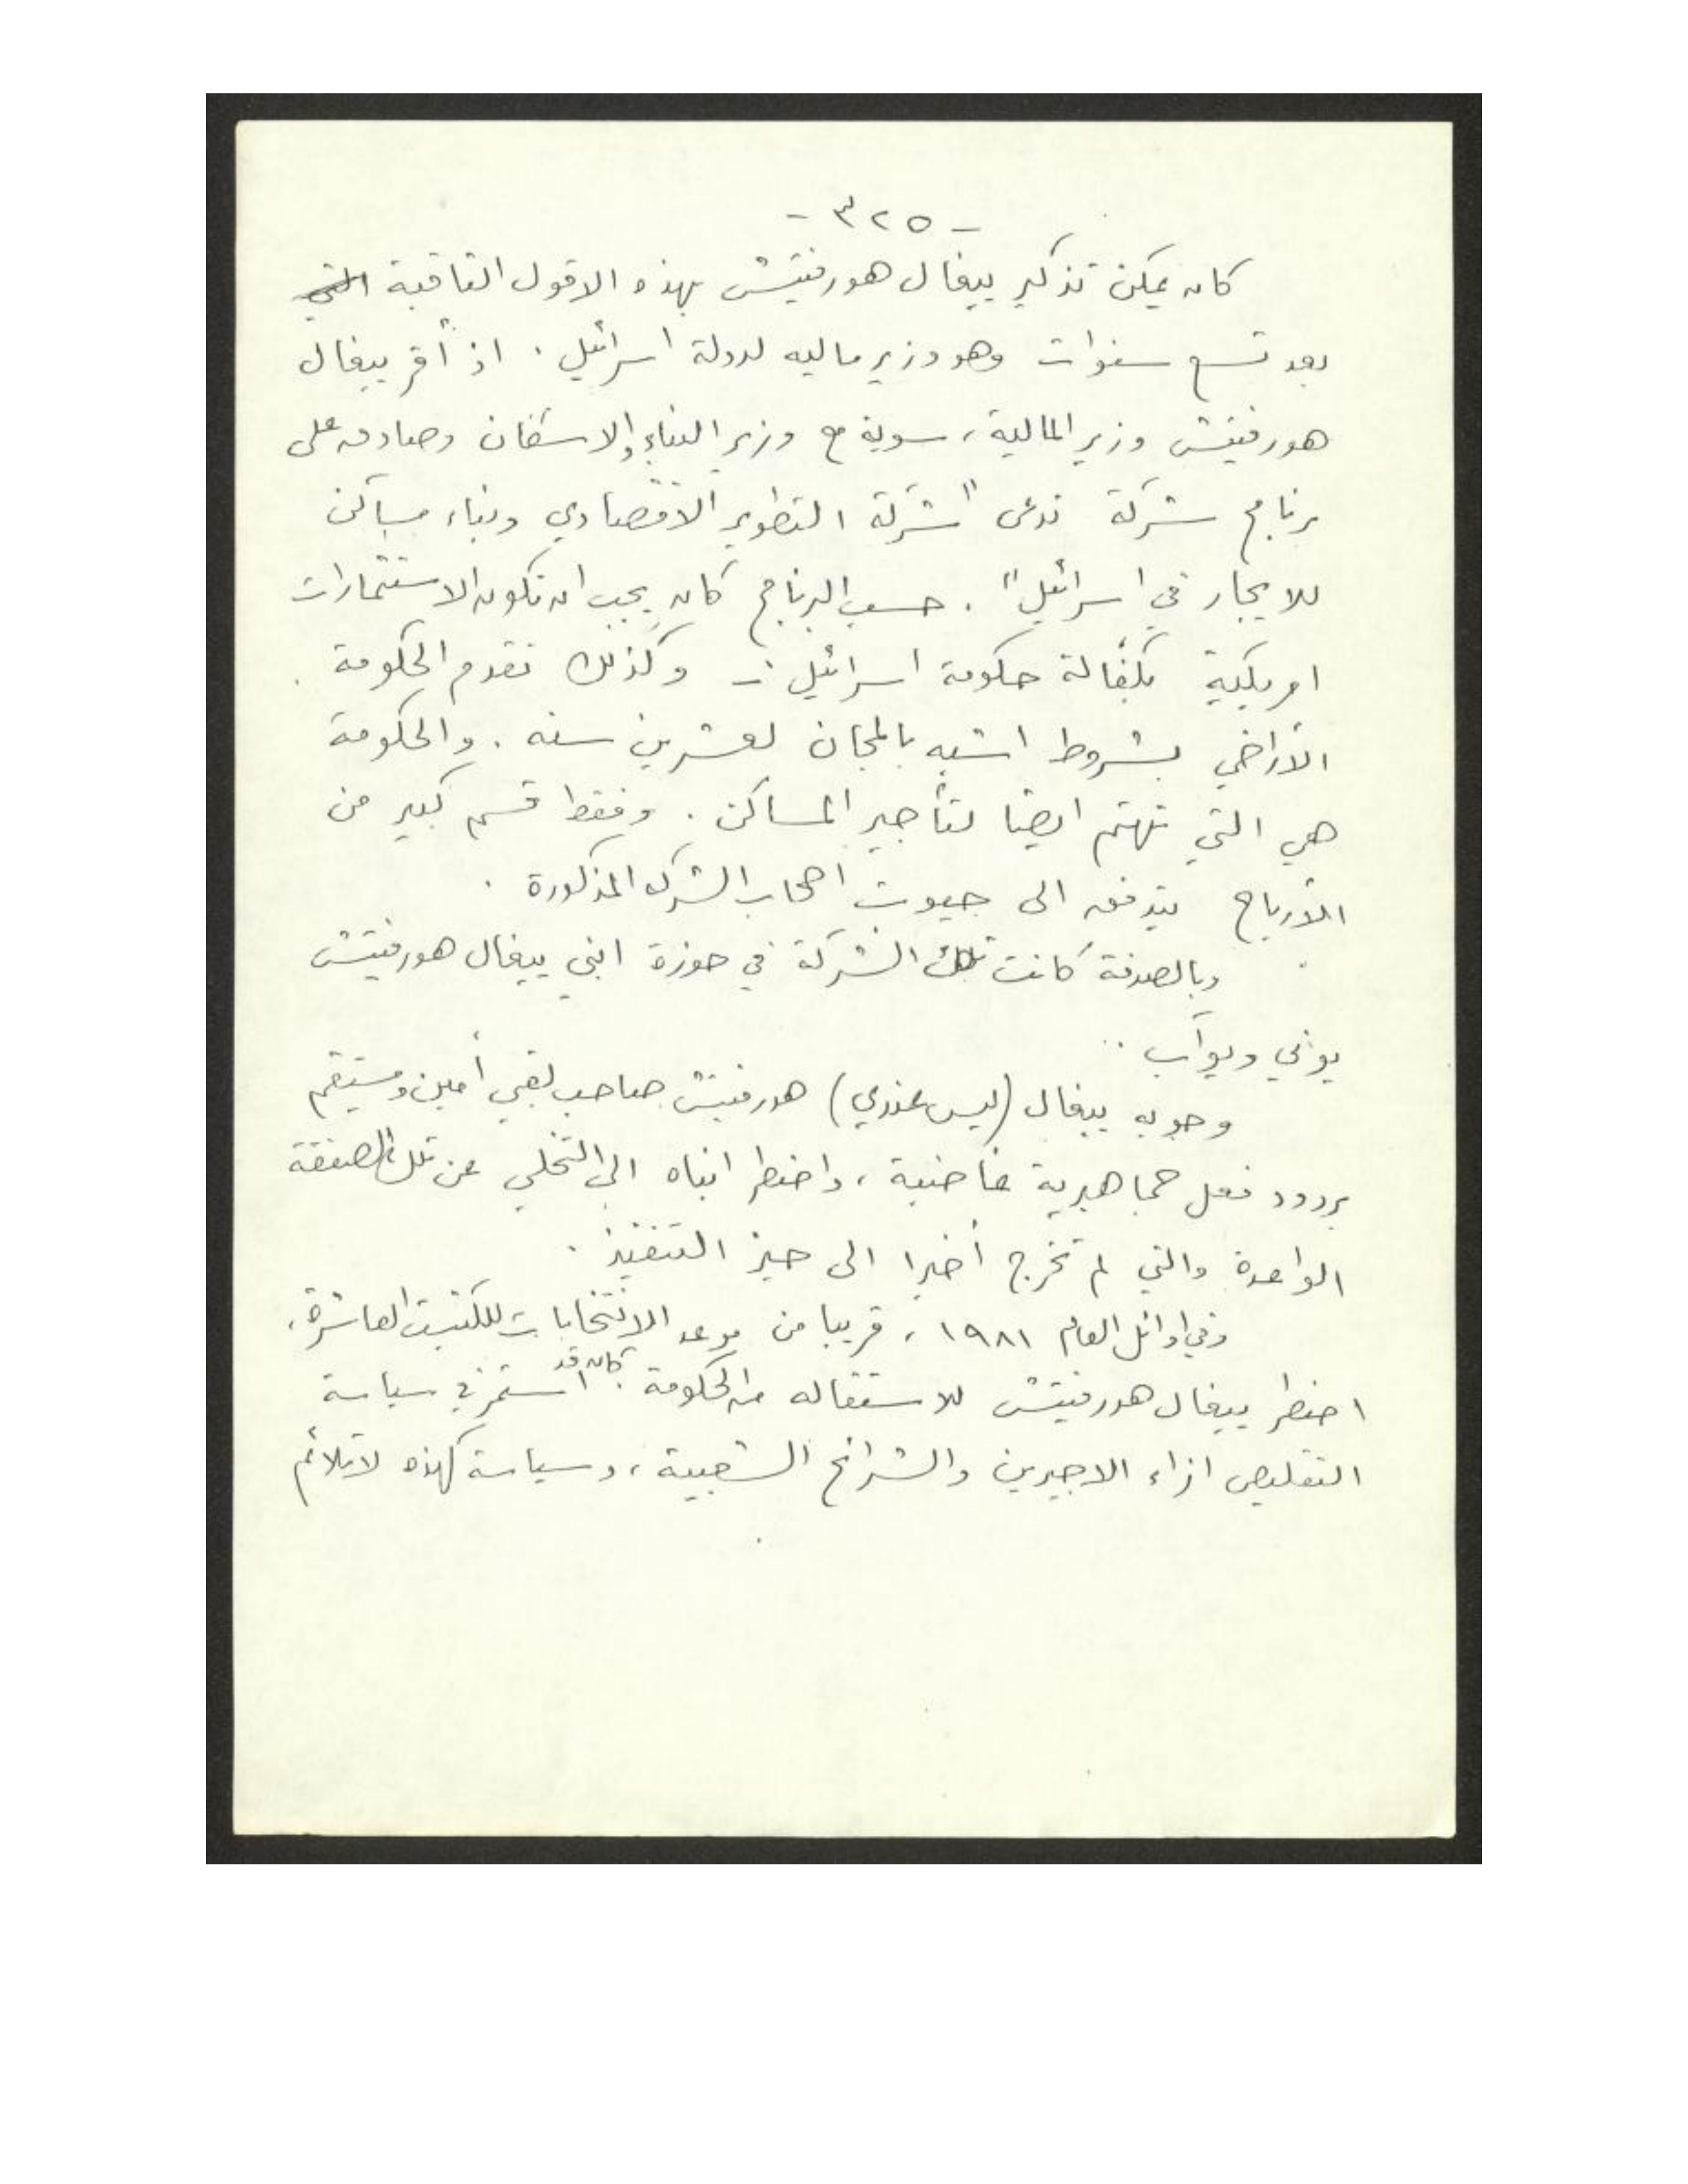 - ٣٢٥ -
كان يمكن تذكير ييغال هورفيتش بهذه الاقول الثاقبة التي
بعد تسع سنوات وهو وزير ماليه لدولة اسرائيل. اذ أقر ييغال
هورفيتش وزير المالية، سوية مع وزير البناء والاسكان وصادق على
برنامج شركة تدعى "شركة التطوير الاقتصادي وبناء مساكن
للايجار في اسرائيل". حسب البرنامج كان يجب ان تكون الاستثمارات
امريكية بكفالة حكومة اسرائيل - وكذلك تقدم الحكومة
الأراضي بشروط اشبه بالمجان لعشرين سنه. والحكومة
هي التي تهتم ايضا لتأجير المساكن. وفقط قسم كبير من
الأرباح يتدفق الى جيوب اصحاب الشركه المذكورة.
وبالصدفة كانت تلك الشركة في حوزة ابني ييغال هورفيتش
يوني ويوآب..
وجوبه ييغال (ليس عندي) هورفيتش صاحب لقبي أمين ومستقيم
بردود فعل جماهيرية غاضبة، واضطر ابناه الى التخلي عن تلك الصفقة
الواعدة والتي لم تخرج أخيرا الى حيز التنفيذ.
وفي اوائل العام ١٩٨١، قريبا من موعد الانتخابات للكنيست العاشرة،
اضطر ييغال هورفيتش للاستقاله من الحكومة. كان قد استمر في سياسة
التقليص ازاء الاجيرين والشرائح الشعبية، وسياسة كهذه لا تلائم